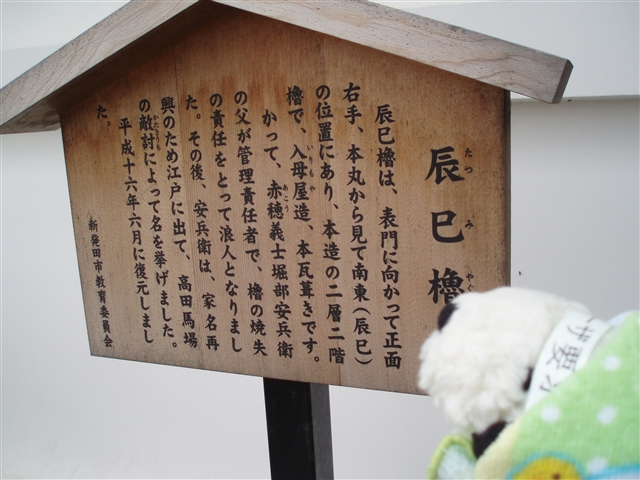 辰巳櫓
たつみやぐ
辰巳櫓は、表門に向かって正面
右手、本丸から見て南東(辰巳)
の位置にあり、本造の二層二階
櫓で、入母屋造、本瓦葺きです。
いりもや
かつて、赤穂義士堀部安兵衛
あこう
の父が管理責任者で、櫓の焼失
の責任をとって浪人となりまし
た。その後、安兵衛は、家名再
興のため江戸に出て、高田馬場
の敵討によって名を挙げました。
かたきうち
平成十六年六月に復元しまし
た。
新発田市教育委員会
ザ要